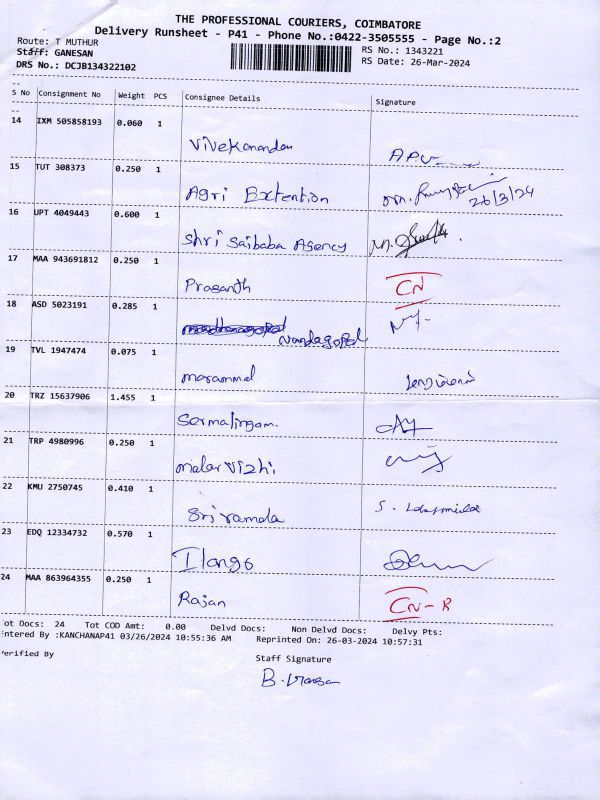 THE PROFESSIONAL COURIERS, COIMBATORE
Delivery Runsheet - P41 - Phone No.:0422-3505555 - Page No.:2
Route: T MUTHUR
Staff: GANESAN
DRS No.: DCJB134322102
RS No.: 1343221
RS Date: 26-Mar-2024
S No Consignment No Weight PCS Consignee Details Signature
14 IXM 505858193 0.060 1
Vivekanandan
15 TUT 308373 0.250 1
Agri Extention 26/3/24
16 UPT 4049443 0.600 1
Shri Saibaba Agency
17 MAA 943691812 0.250 1
Prasanth CN
18 ASD 5023191 0.285 1
Nandagopal
19 TVL 1947474 0.075 1
20 TRZ 15637906 1.455 1
21 TRP 4980996 0.250 1
malarvizhi
22 KMU 2750745 0.410 1
23 EDQ 12334732 0.570 1
Ilango
24 MAA 863964355 0.250 1
Rajan CN-R
ot Docs: 24 Tot COD Amt: 0.00 Delvd Docs: Non Delvd Docs: Delvy Pts:
ntered By :KANCHANAP41 03/26/2024 10:55:36 AM Reprinted On: 26-03-2024 10:57:31
erified By Staff Signature